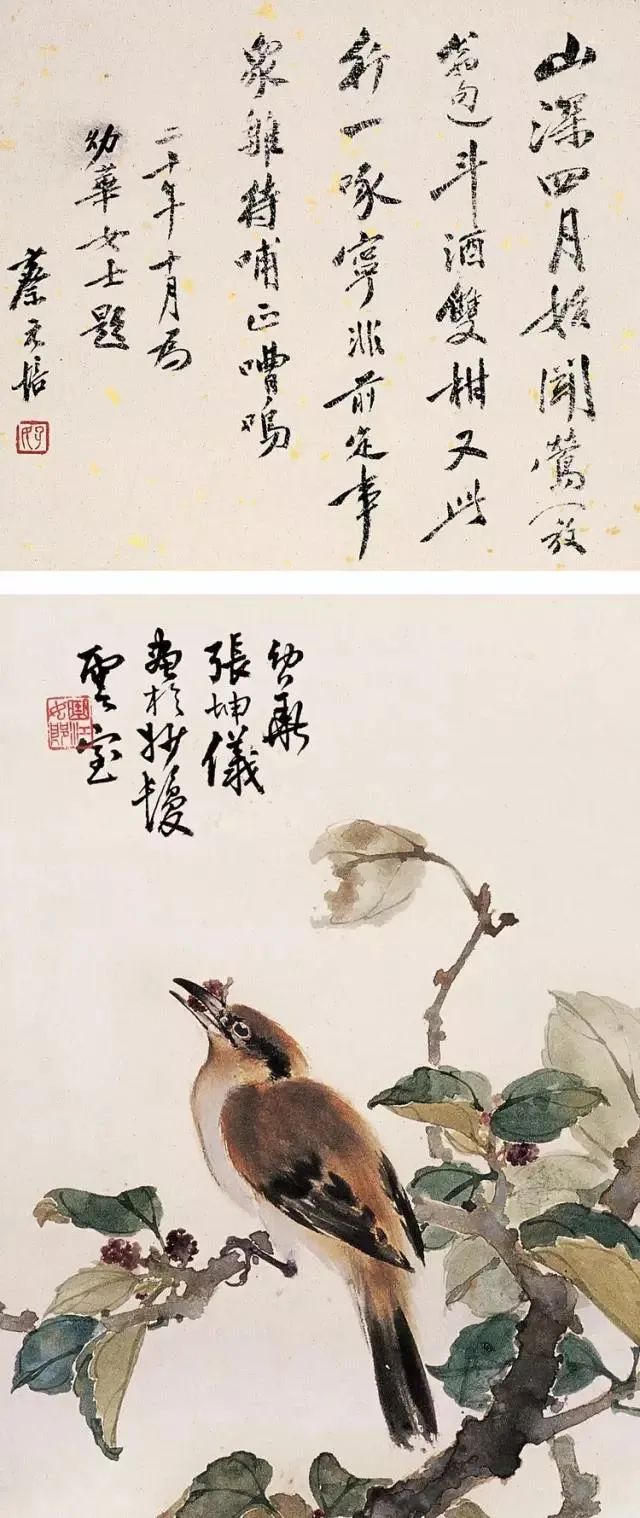 山深四月始聞鶯（放
翁句）斗酒雙柑又此
行一啄寧非前定事
眾雛待哺正嘈鳴
二十年十月為
幼華女士題
蔡元培
幼華
張坤儀
畫於妙鬘
雲室